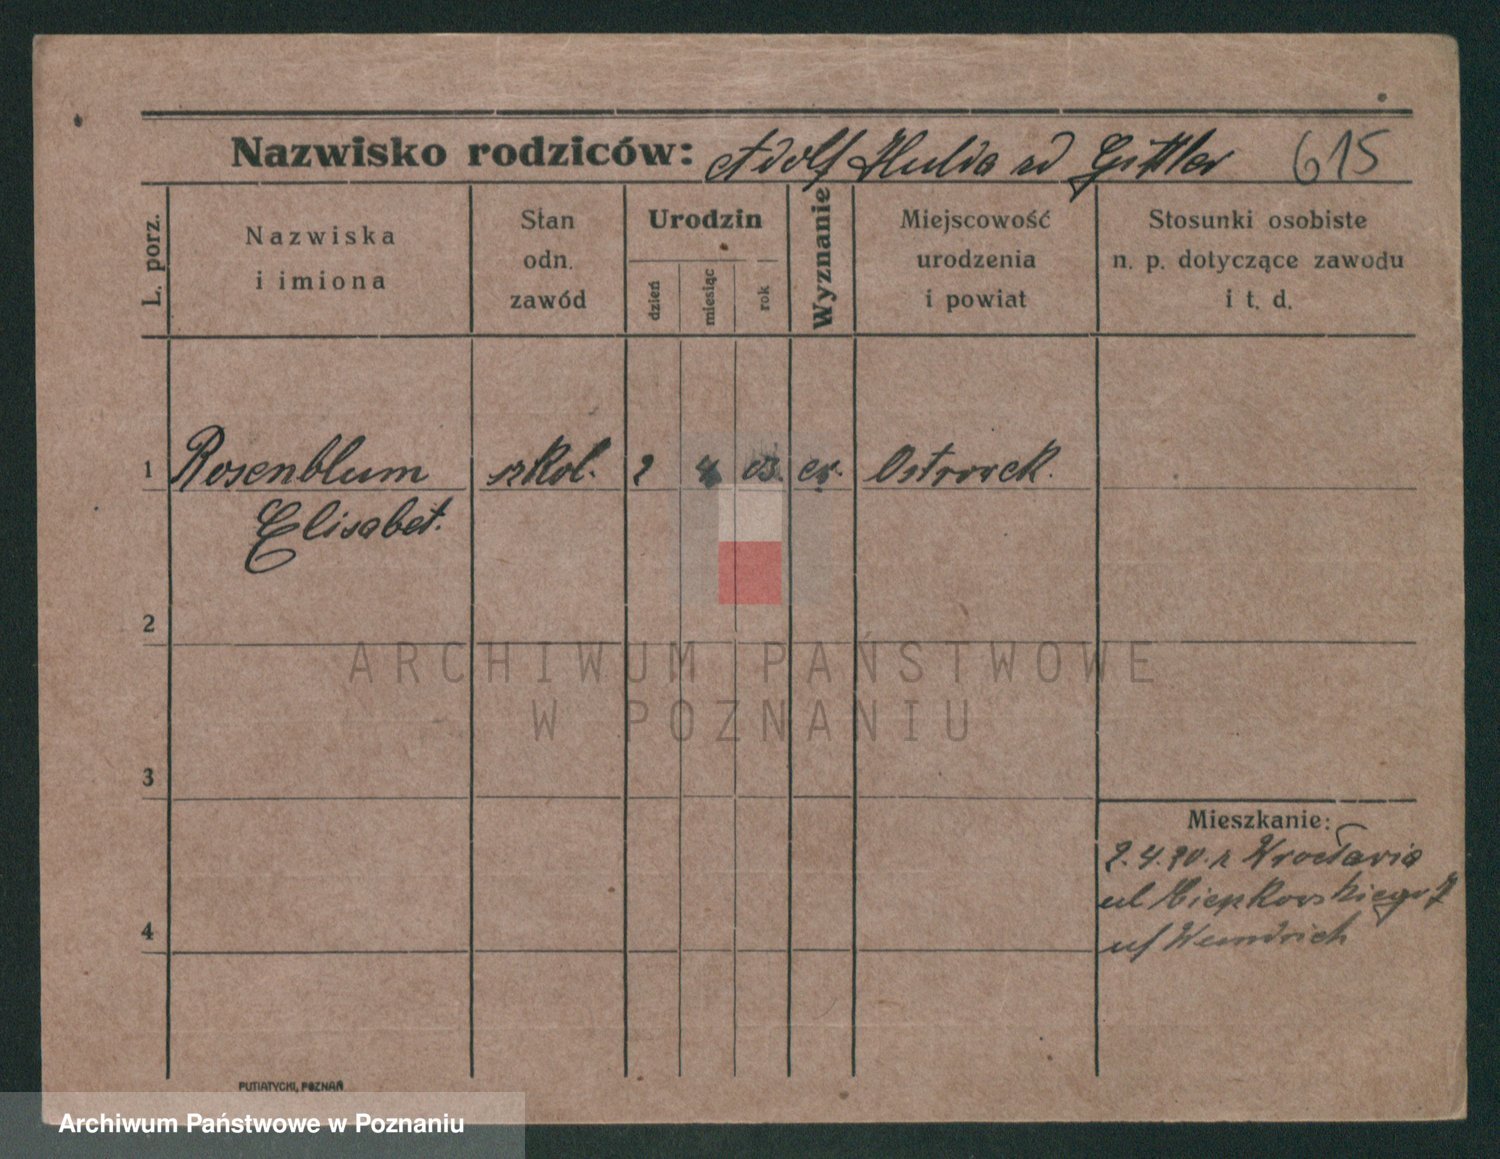 Nazwisko rodziców: Adolf Hulda zd Gittler 615
L. porz.
Nazwiska
i imiona
Stan
odn.
zawód
Urodzin
dzień
miesiąc
rok
Wyznanie
Miejscowość
urodzenia
i powiat
Stosunki osobiste
n. p. dotyczące zawodu
i t. d.
1 Rosenblum szkol. 2 4 03. ew. Ostrorek.
Elisabet.
2
3
4
Mieszkanie:
2.4.20. z Wrocławia
ul
uf Wundrich
PUTIATYCKI, POZNAŃ
ARCHIWUM PAŃSTWOWE
W POZNANIU
Archiwum Państwowe w Poznaniu